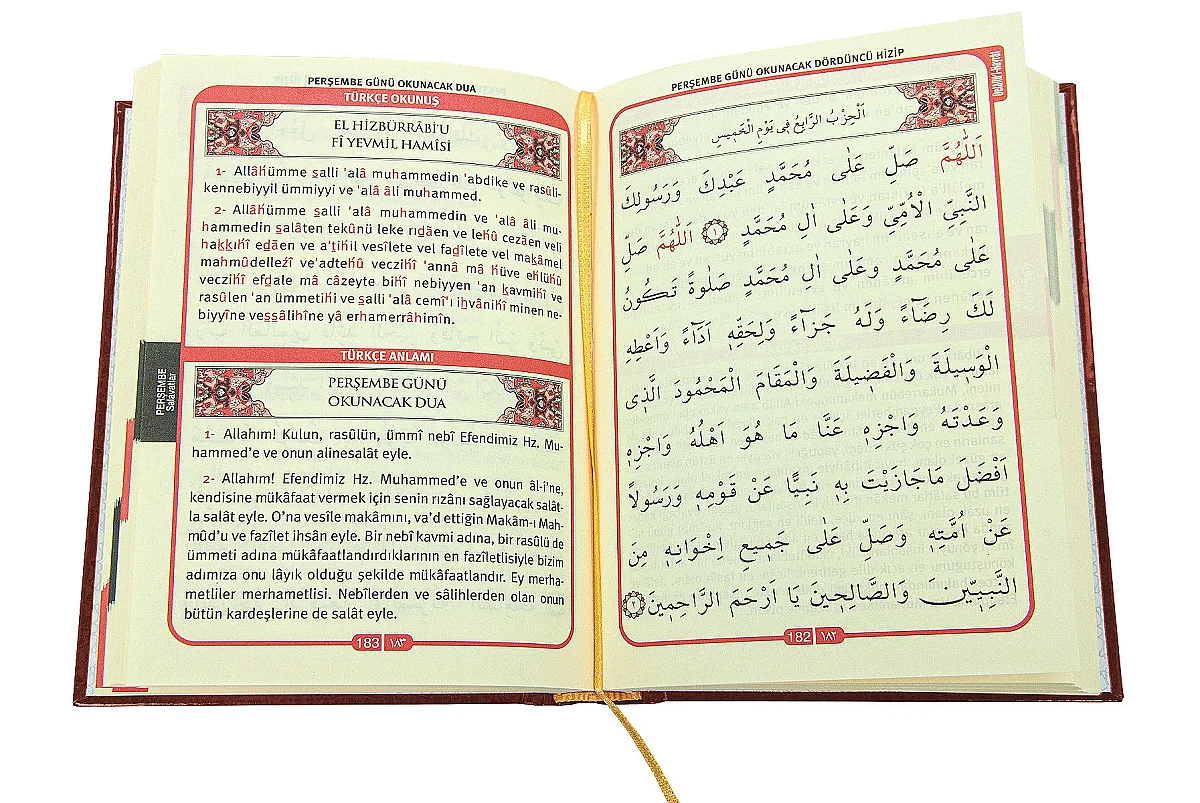 PERŞEMBE GÜNÜ OKUNACAK DÖRDÜNCÜ HİZİP
اَلْحِزْبُ الرَّابِعُ فِي يَوْمِ الْخَمِيسِ
اَللّٰهُمَّ صَلِّ عَلٰى مُحَمَّدٍ عَبْدِكَ وَرَسُولِكَ
النَّبِيِّ الْاُمِّيِّ وَعَلٰى اٰلِ مُحَمَّدٍ ﴿١﴾ اَللّٰهُمَّ صَلِّ
عَلٰى مُحَمَّدٍ وَعَلٰى اٰلِ مُحَمَّدٍ صَلٰوةً تَكُونُ
لَكَ رِضَٓاءً وَلَهُ جَزَٓاءً وَلِحَقِّهٖ اَدَٓاءً وَاَعْطِهِ
الْوَسٖيلَةَ وَالْفَضٖيلَةَ وَالْمَقَامَ الْمَحْمُودَ الَّذٖى
وَعَدْتَهُ وَاجْزِهٖ عَنَّا مَا هُوَ اَهْلُهُ وَاجْزِهٖ
اَفْضَلَ مَاجَازَيْتَ بِهٖ نَبِيًّا عَنْ قَوْمِهٖ وَرَسُولاً
عَنْ اُمَّتِهٖ وَصَلِّ عَلٰى جَمٖيعِ اِخْوَانِهٖ مِنَ
النَّبِيّٖينَ وَالصَّالِحٖينَ يَا اَرْحَمَ الرَّاحِمٖينَ ﴿٢﴾
182 ١٨٢
PERŞEMBE GÜNÜ OKUNACAK DUA
TÜRKÇE OKUNUŞ
EL HİZBÜRRÂBİ'U
FÎ YEVMİL HAMÎSİ
1- Allâhümme salli 'alâ muhammedin 'abdike ve rasûli-
kennebiyyil ümmiyyi ve 'alâ âli muhammed.
2- Allâhümme salli 'alâ muhammedin ve 'alâ âli mu-
hammedin salâten tekûnü leke rıdâen ve lehû cezâen veli
hakkıhî edâen ve a'tıhil vesîlete vel fadîlete vel makâmel
mahmûdellezî ve'adtehû veczihî 'annâ mâ hüve ehlühû
veczihî efdale mâ câzeyte bihî nebiyyen 'an kavmihî ve
rasûlen 'an ümmetihi ve salli 'alâ cemî'ı ihvânihî minen ne-
biyyîne vessâlihîne yâ erhamerrâhimîn.
TÜRKÇE ANLAMI
PERŞEMBE GÜNÜ
OKUNACAK DUA
1- Allahım! Kulun, rasûlün, ümmî nebî Efendimiz Hz. Mu-
hammed'e ve onun alinesalât eyle.
2- Allahım! Efendimiz Hz. Muhammed'e ve onun âl-i'ne,
kendisine mükâfaat vermek için senin rızânı sağlayacak salât-
la salât eyle. O'na vesîle makâmını, va'd ettiğin Makâm-ı Mah-
mûd'u ve fazîlet ihsân eyle. Bir nebî kavmi adına, bir rasûlü de
ümmeti adına mükâfaatlandırdıklarının en fazîletlisiyle bizim
adımıza onu lâyık olduğu şekilde mükâfaatlandır. Ey merha-
metliler merhametlisi. Nebîlerden ve sâlihlerden olan onun
bütün kardeşlerine de salât eyle.
183 ١٨٣
PERŞEMBE
Salavatlar